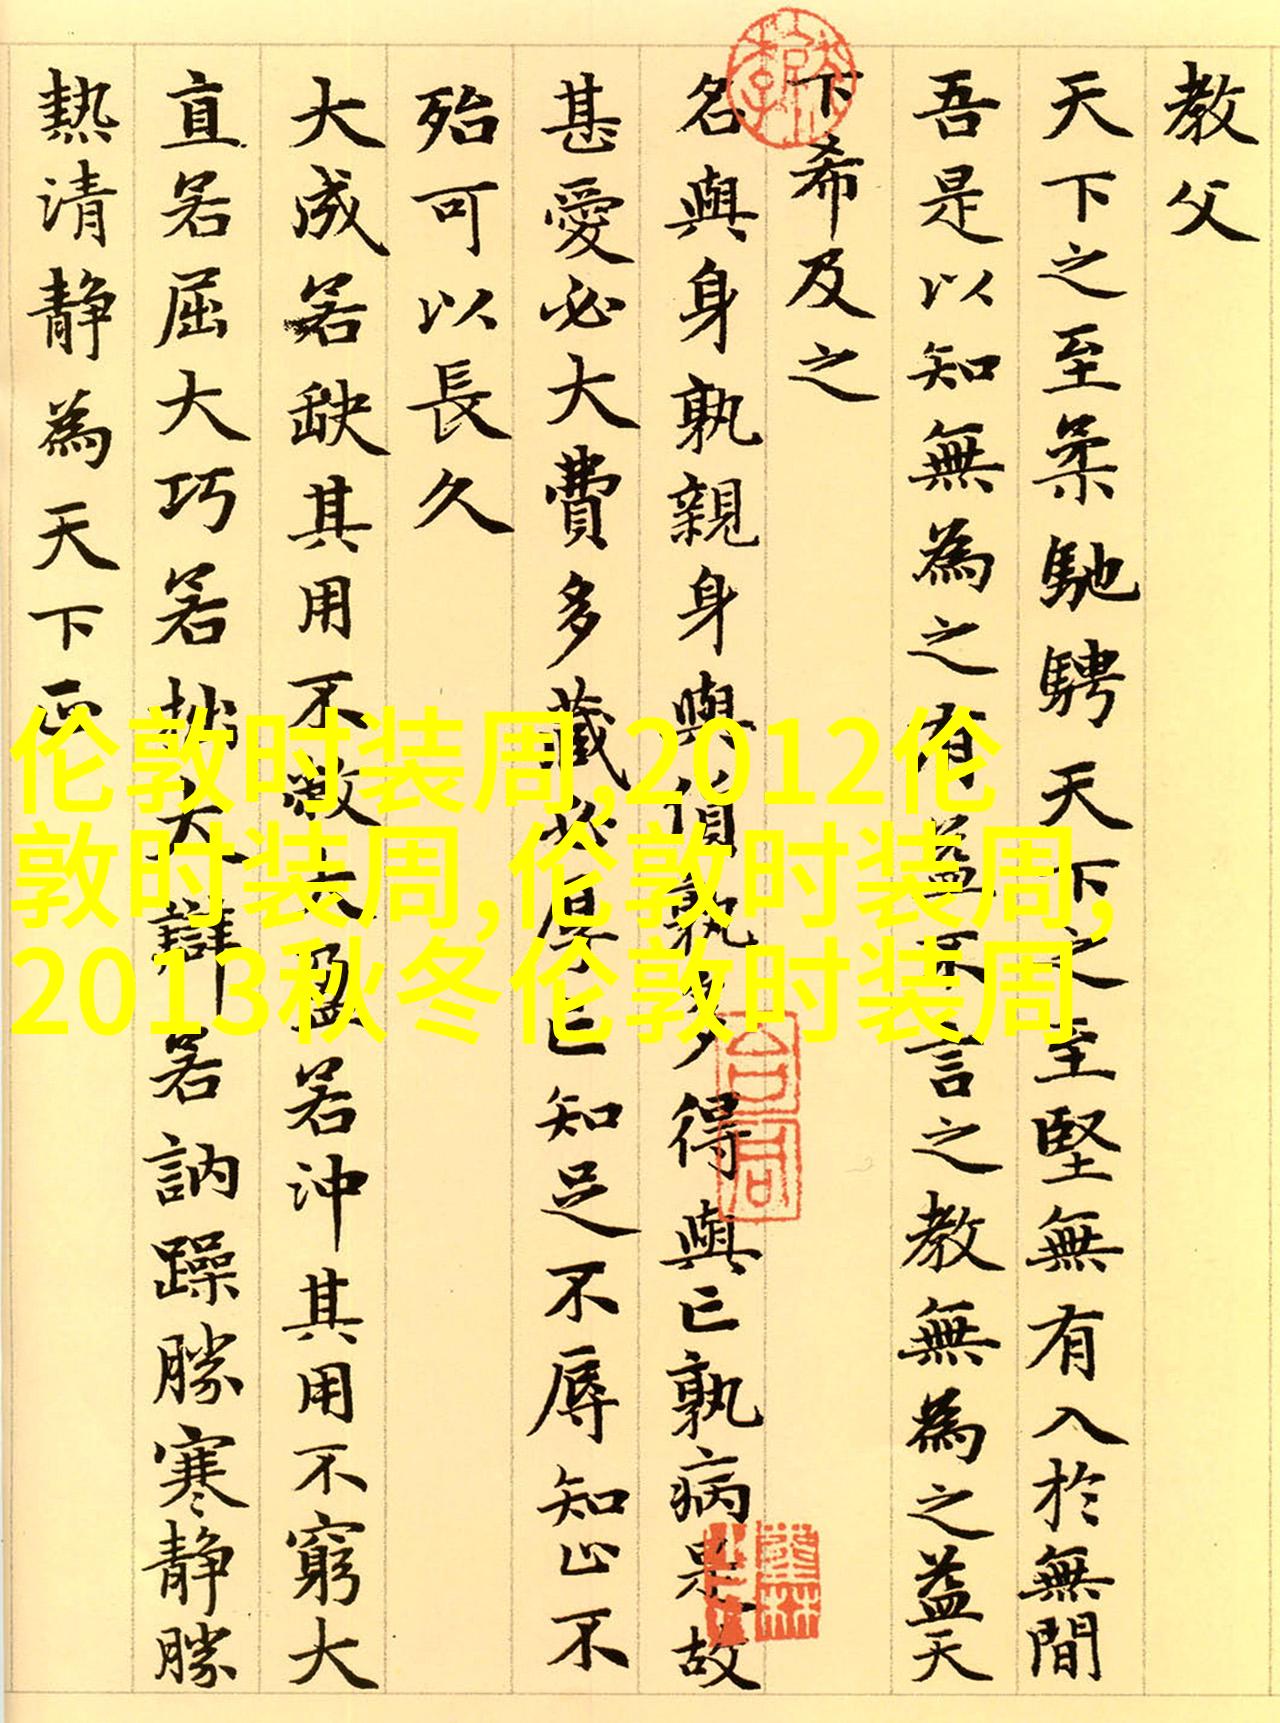 教父
天下之至柔馳騁天下之至堅無有入於無間
吾是以知無為之有益不言之教無為之益天
下希及之
名與身孰親身與貨孰多得與亡孰病是故
甚愛必大費多藏必厚亡知足不辱知止不
殆可以長久
大成若缺其用不敝大盈若沖其用不窮大
直若屈大巧若拙大辯若訥躁勝寒靜勝
熱清靜為天下正
伦敦时装周,2012伦
敦时装周,伦敦时装周,
2013秋冬伦敦时装周